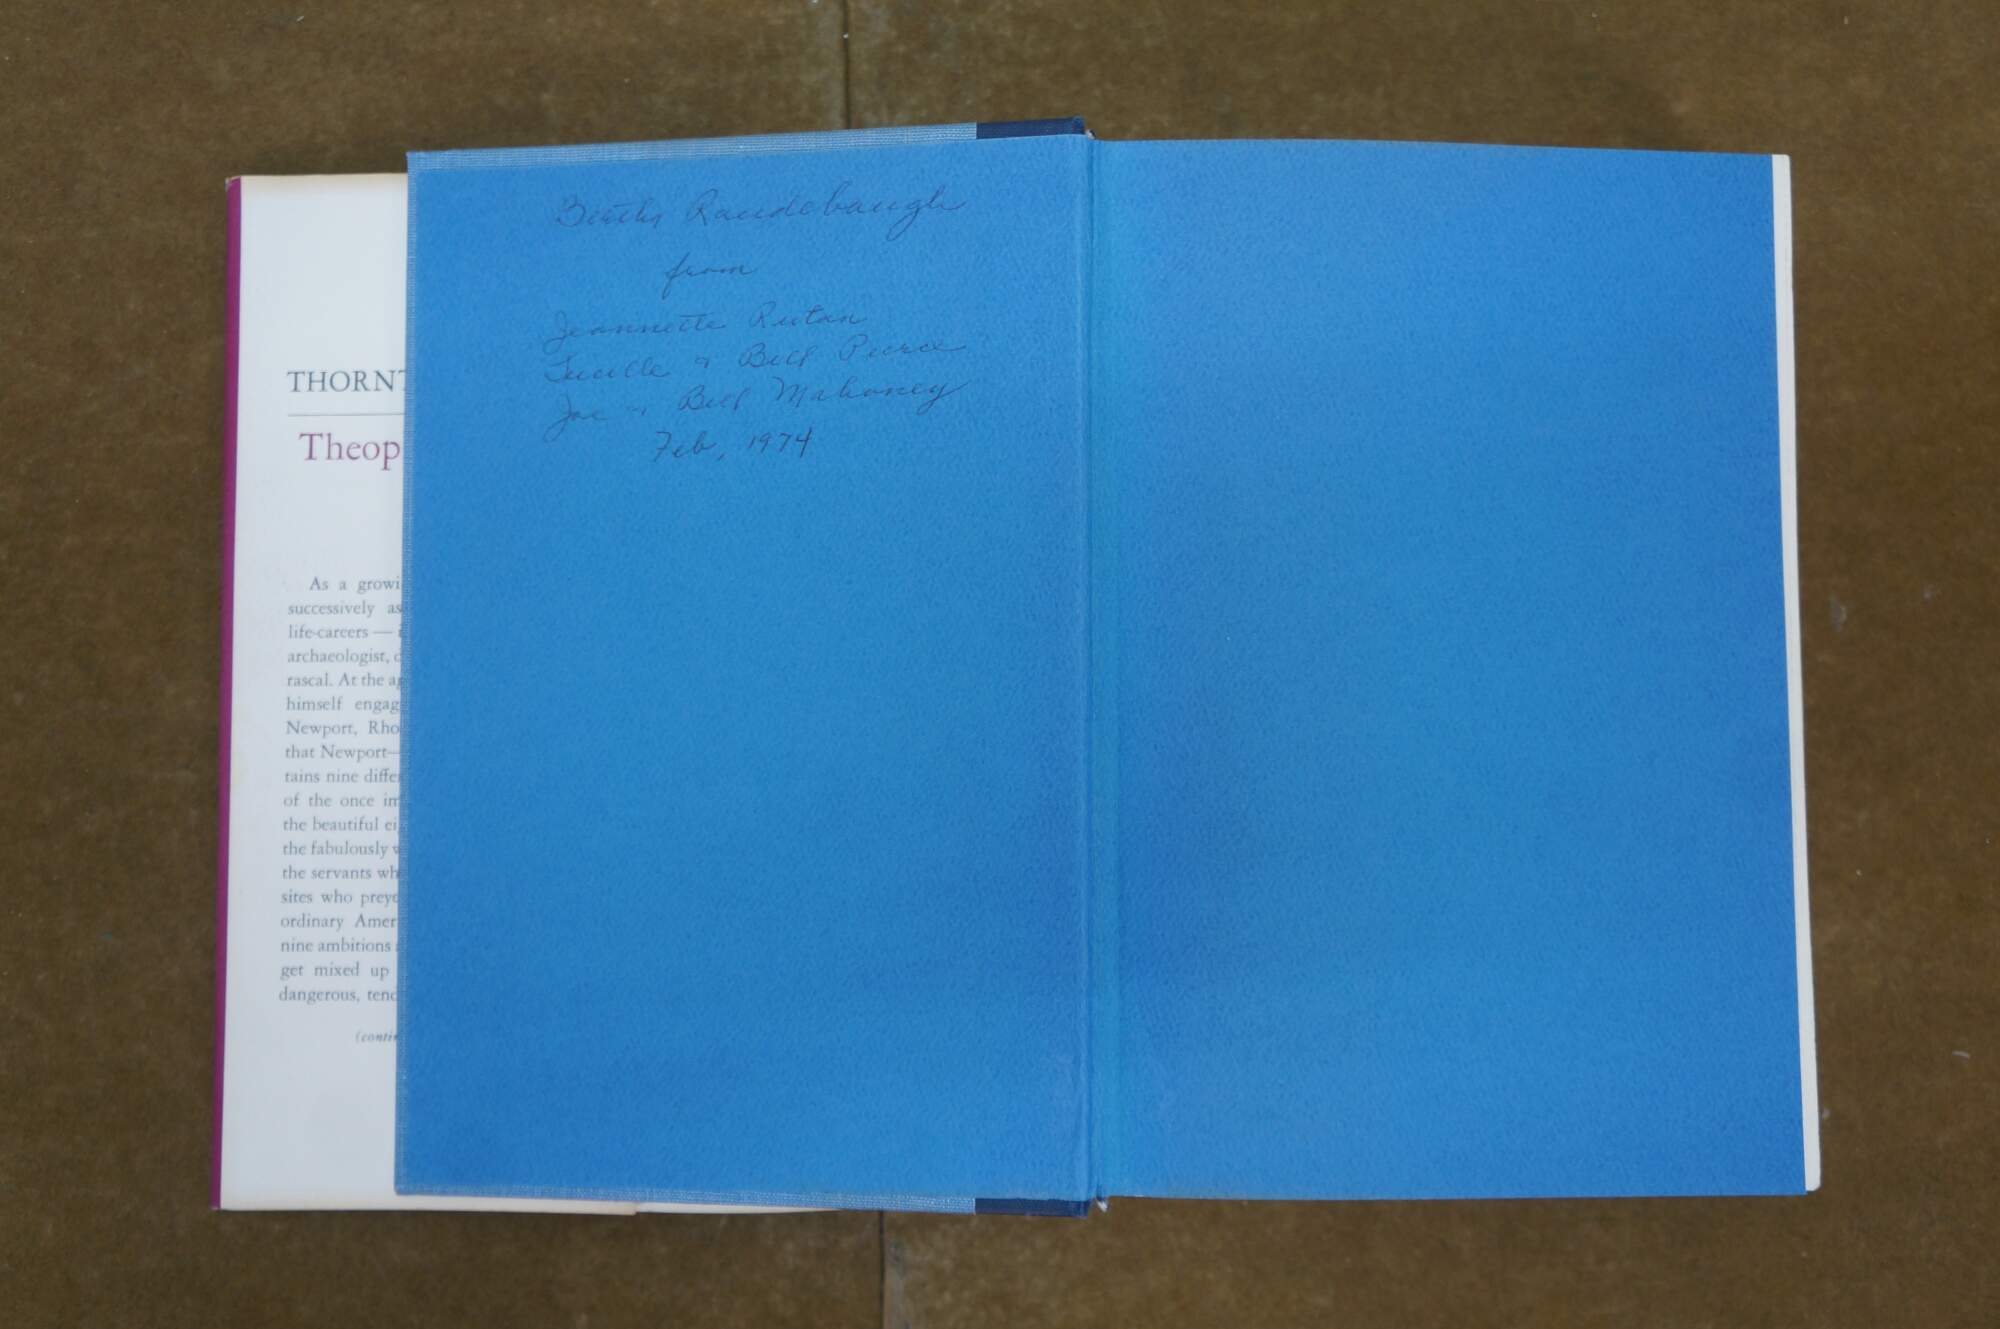 THORNT
Theop
As a growi
successively as
life-careers — i
archaeologist, c
rascal. At the ag
himself engag
Newport, Rho
that Newport—
tains nine differ
of the once im
the beautiful ei
the fabulously w
the servants wh
sites who preye
ordinary Amer
nine ambitions a
get mixed up
dangerous, tend
(contin
Bertha Raudebaugh
from
Jeannette Rutan
Lucille & Bill Pierce
Joe & Bill Mahoney
Feb, 1974